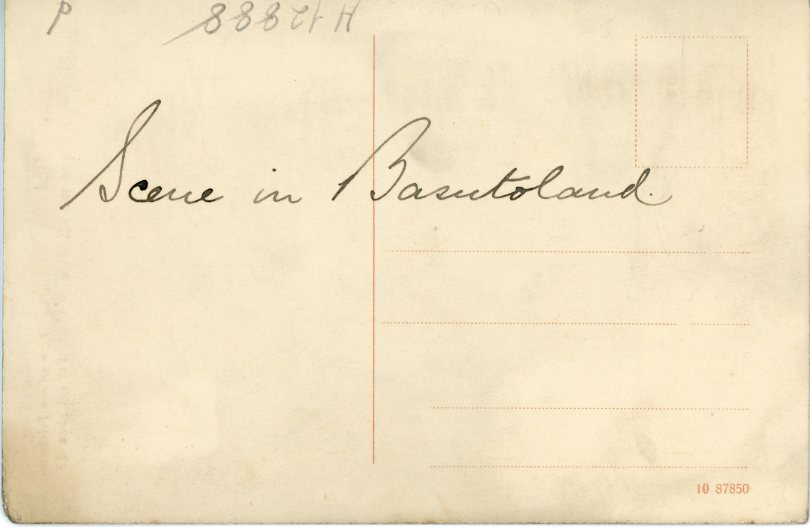 H 12888 P
Scene in Basutoland.
10 87850